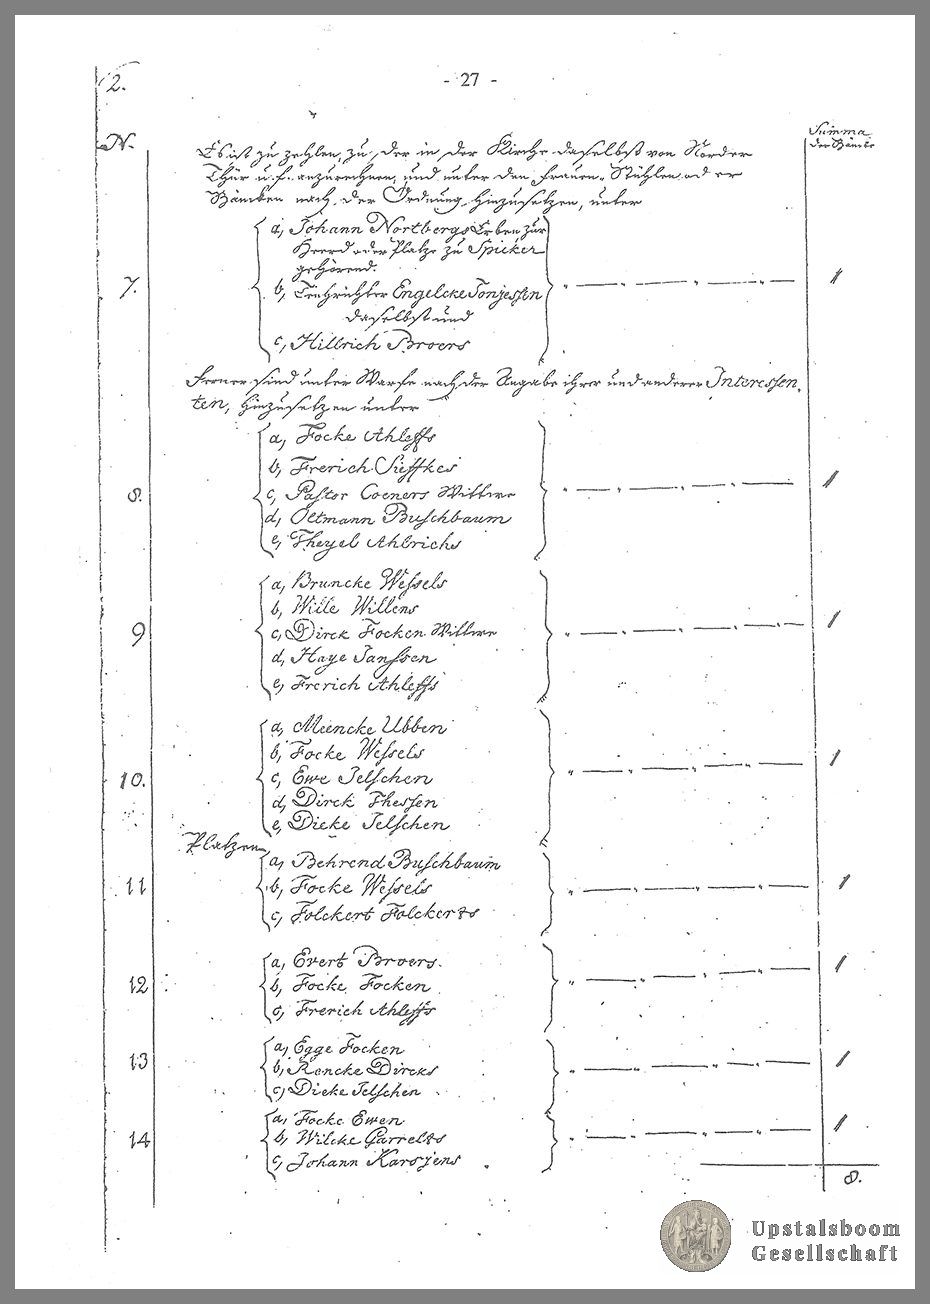 2.
- 27 -
N.
Summa
der Bäncke
Es ist zu zehlen, zu der in der Kirche daselbst von Norder
Thür u. f. anzurechnen, und unter den Frauen-Stühlen oder
Bäncken nach der Ordnung hinzusetzen, unter
a, Johann Nortbergs Erben zur
Heerd oder Platze zu Spicker
gehörend.
7. b, Teichrichter Engelcke Tonjessen „ — „ — „ — „ — 1
daselbst und
c, Hillrich Broers
Ferner sind unter Warfe nach der Angabe ihrer und anderer Interessen-
ten, hinzusetzen unter
a, Focke Ahleffs
b, Frerich Sieffkes
8. c, Pastor Coeners Wittwe „ — „ — „ — „ — 1
d, Oltmann Buschbaum
e, Theyel Ahlrichs
a, Bruncke Wessels
b, Wille Willens
9 c, Dirck Focken Wittwe „ — „ — „ — „ — 1
d, Haye Janssen
e, Frerich Ahleffs
a, Meencke Ubben
b, Focke Wessels
10. c, Ewe Jelschen „ — „ — „ — „ — 1
d, Dirck Thessen
e, Dieke Jelschen
Platzen
a, Behrend Buschbaum
11 b, Focke Wessels „ — „ — „ — „ — 1
c, Folckert Folckerts
a, Evert Broers.
12 b, Focke Focken „ — „ — „ — „ — 1
c, Frerich Ahleffs
a, Egge Focken
13 b, Rencke Dircks „ — „ — „ — „ — 1
c, Dieke Jelschen
a, Focke Ewen
14 b, Wilcke Garrelts „ — „ — „ — „ — 1
c, Johann Karsjens
8.
Upstalsboom
Gesellschaft